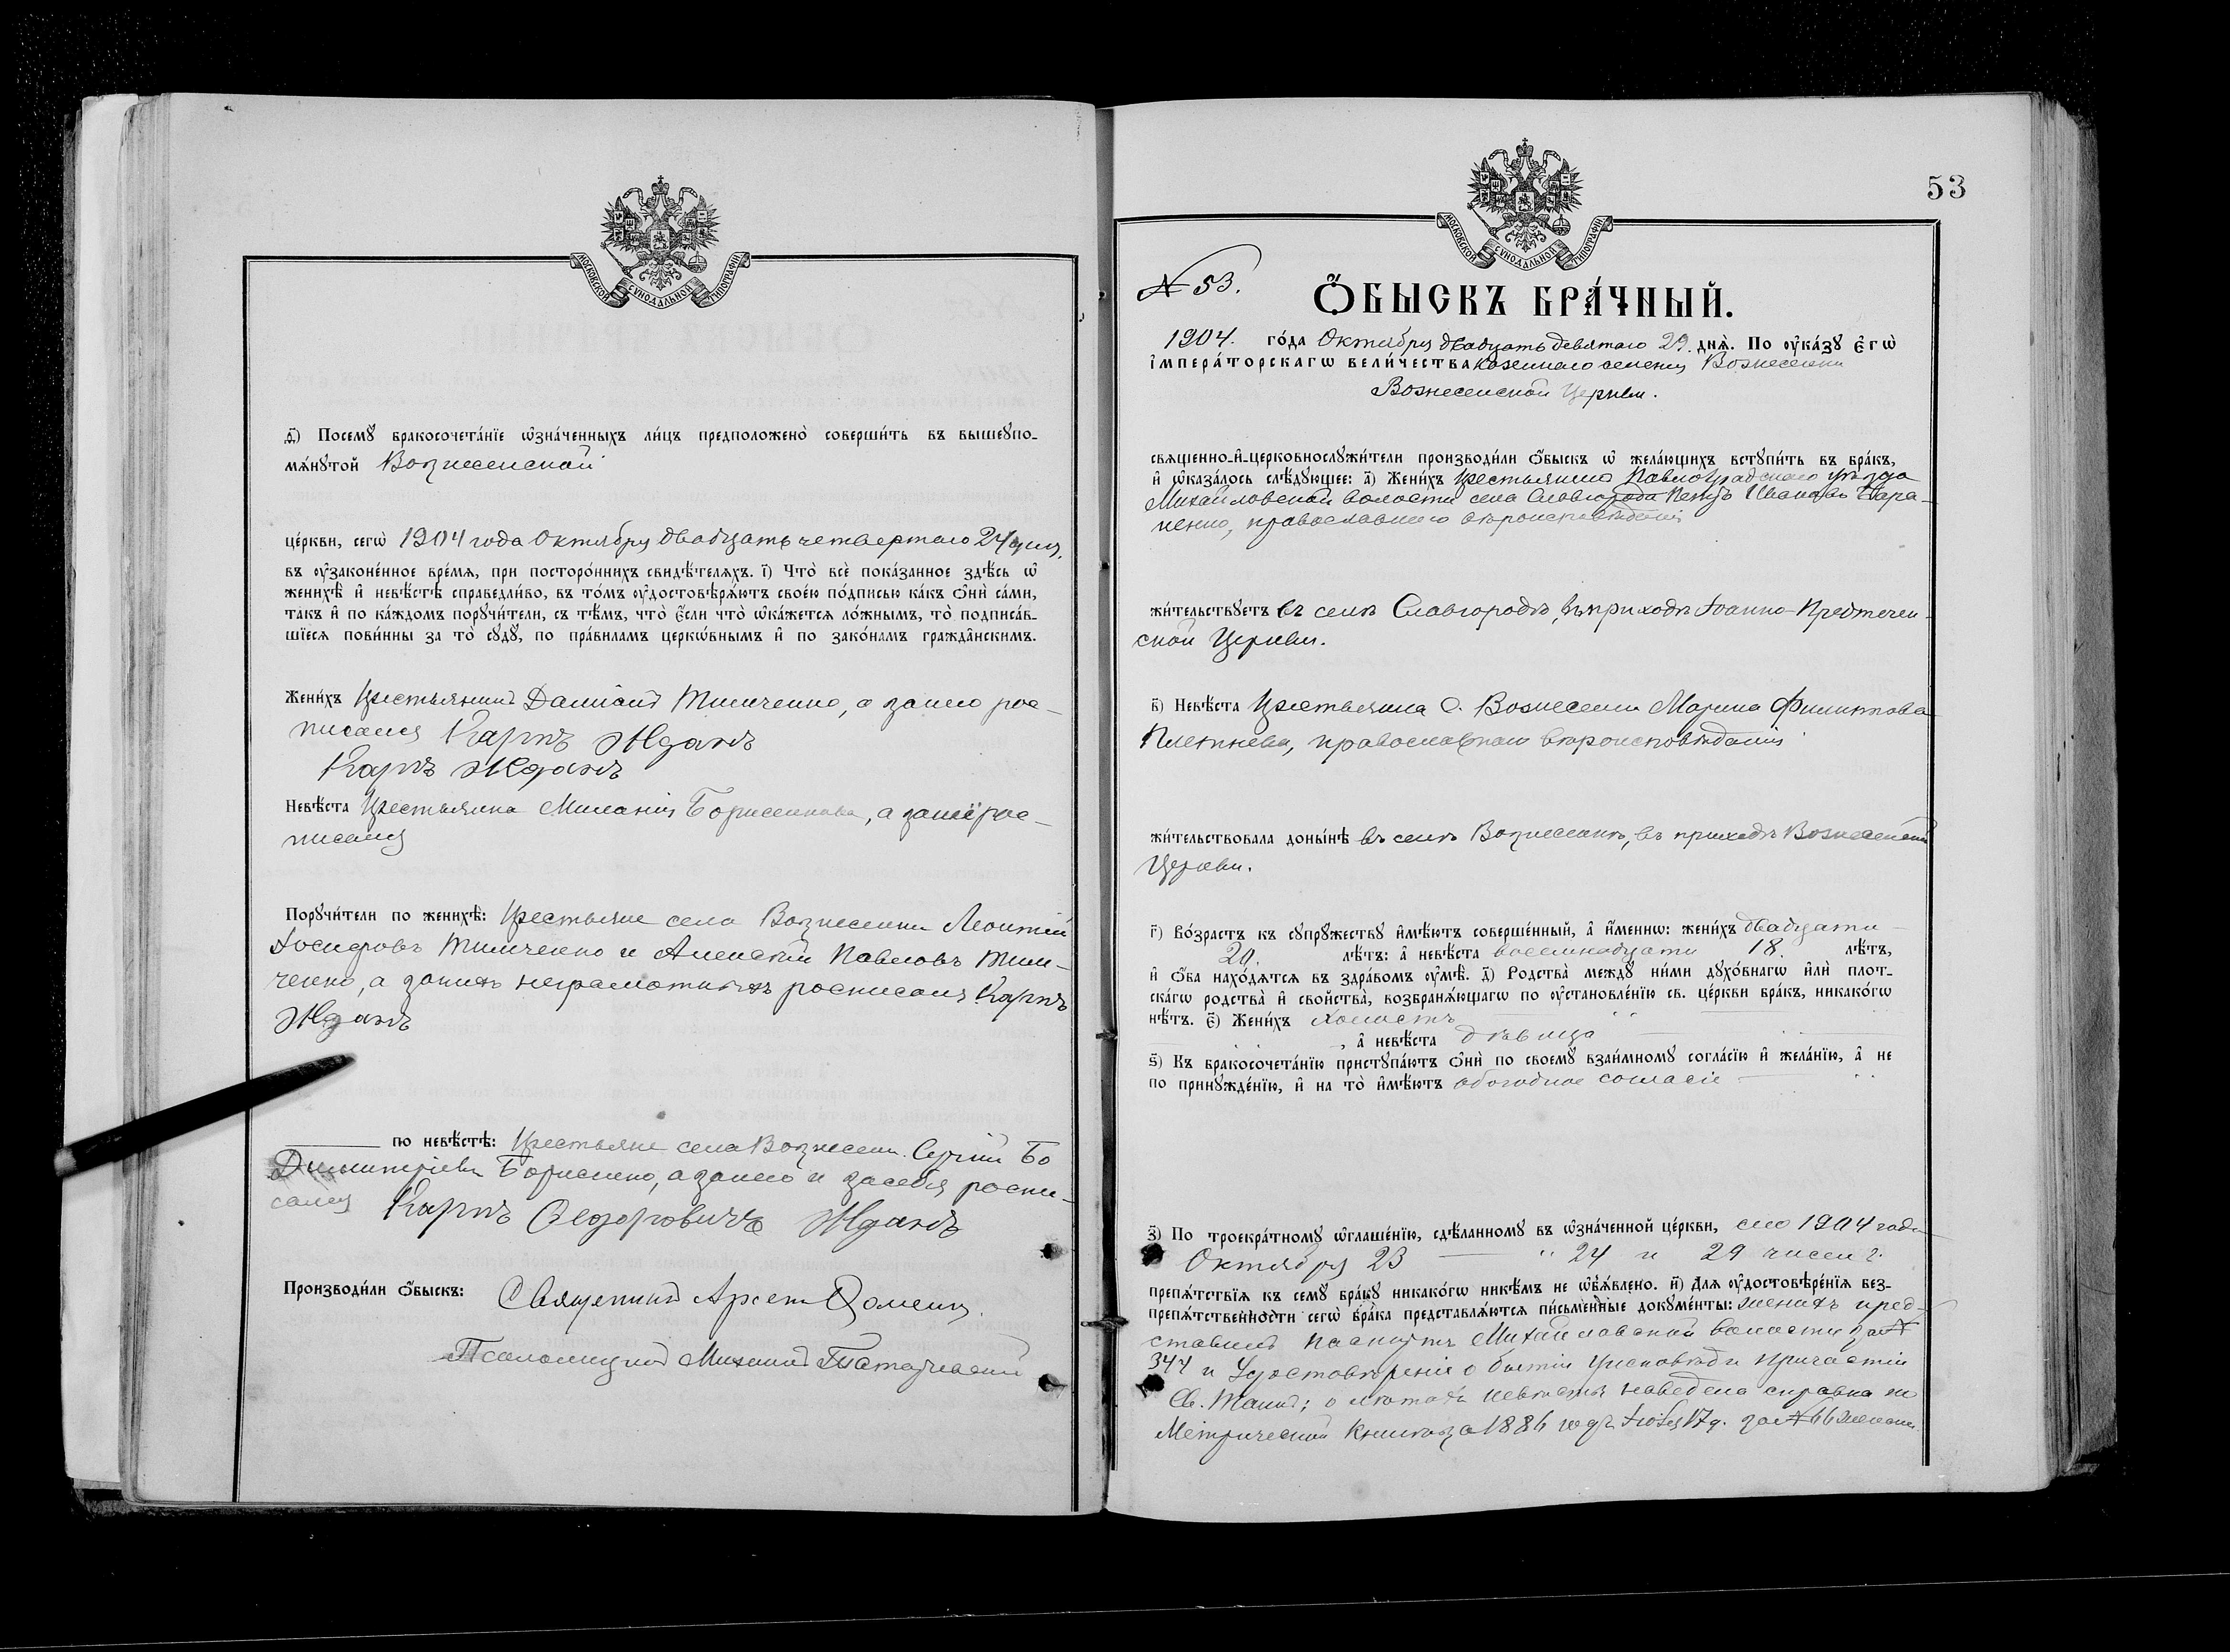 МОСКОВСКОЙ СѴНОДАЛЬНОЙ ТИПОГРАФІИ
д҃і) Посемꙋ̀ бракосочета́нїе ѡ҆зна́ченныхъ ли́цъ предположено̀ соверши́ть въ вышеꙋпо-
мѧ́нꙋтой Вознесенской
це́ркви, сегѡ̀ 1904 года Октября двадцать четвертаго 24 дня,
въ ᲂу҆законе́нное вре́мѧ, при посторо́ннихъ свидѣ́телѧхъ. і҃) Что̀ всѐ пока́занное здѣ́сь ѡ҆
женихѣ̀ и҆ невѣ́стѣ справедли́во, въ то́мъ ᲂу҆достовѣрѧ́ютъ свое́ю по́дписью ка́къ ѻ҆нѝ са́ми,
та́къ и҆ по ка́ждомъ порꙋчи́тели, съ тѣ́мъ, что̀ є҆́сли что̀ ѡ҆ка́жетсѧ ло́жнымъ, то̀ подписа́в-
шїесѧ пови́нны за то̀ сꙋдꙋ̀, по пра́виламъ церкѡ́внымъ и҆ по зако́намъ гражда̂нскимъ.
Жени́хъ Крестьянинъ Даміанъ Тимченко, а занего рос-
писался Карпъ Жданъ
Карпъ Жданъ
Невѣ́ста Крестьянка Миланія Борисенкова, а занеё рос-
писался
Порꙋчи́тели по женихѣ̀: Крестьяне села Вознесенки Леонтій
Іосифовъ Тимченко и Алексѣй Павловъ Тим-
ченко, а заних неграмотныхъ росписался Карпъ
Жданъ
по невѣ́стѣ: Крестьяне села Вознесен. Сергій Бо
Димитріевъ Борисенко, а занего и засебя роспи-
сался Карпъ Ѳедоровичъ Жданъ
Производи́ли ѻ҆́быскъ: Священникъ Арсен
Псаломщикъ Михаилъ
53
МОСКОВСКОЙ СѴНОДАЛЬНОЙ ТИПОГРАФІИ
№ 53.
Ѻ҆́БЫСКЪ БРА́ЧНЫЙ.
1904. го́да Октября двадцать девятаго 29. днѧ̀. По ᲂу҆ка́зꙋ є҆гѡ̀
і҆мпера́торскагѡ вели́чества казеннаго селенія Вознесенки
Вознесенской Церкви.
свѧще́нно-и҆-церковнослꙋжи́тели производи́ли ѻ҆́быскъ ѡ҆ жела́ющихъ встꙋпи́ть въ бра́къ,
и҆ ѡ҆каза́лось слѣ́дꙋющее: а҃) Жени́хъ Крестьянинъ Павлоградскаго уѣзда
Михайловской волости села Славгорода Петръ Ивановъ Тара-
ненко, православнаго вѣроисповѣданія
жи́тельствꙋетъ въ селѣ Славгородѣ, въ приходѣ Іоанно-Предтечен-
ской Церкви.
в҃) Невѣ́ста Крестьянка с. Вознесенки Марина Филиппова
Плетнева, православнаго вѣроисповѣданія
жи́тельствовала доны́нѣ въ селѣ Вознесенкѣ, въ приходѣ Вознесенской
Церкви.
г҃) Во́зрастъ къ сꙋпрꙋ́жествꙋ и҆мѣ́ютъ соверше́нный, а҆ и҆́менно: жени́хъ двадцати
20. лѣ́тъ: а҆ невѣ́ста восемнадцати 18. лѣ́тъ,
и҆ ѻ҆́ба нахо́дѧтсѧ въ здра́вомъ ᲂу҆мѣ̀. д҃) Родства̀ междꙋ̀ ни́ми дꙋхо́внагѡ и҆лѝ плот-
ска́гѡ родства̀ и҆ сво́йства̀, возбранѧ́ющагѡ по ᲂу҆становле́нїю св. це́ркви бра́къ, никако́гѡ
нѣ́тъ. є҃) Жени́хъ холостъ
, а҆ невѣ́ста дѣвица
ѕ҃) Къ бракосочета́нїю пристꙋпа́ютъ ѻ҆нѝ по своемꙋ̀ взаи́мномꙋ согла́сїю и҆ жела́нїю, а҆ не
по принꙋжде́нїю, и҆ на то̀ и҆мѣ́ютъ обогодное согласіе
з҃) По троекра́тномꙋ ѡ҆глаше́нїю, сдѣ́ланномꙋ въ ѡ҆зна́ченной це́ркви, сего 1904 года
Октября 23 " 24 и 29 числ
препѧ́тствїѧ къ семꙋ̀ бра́кꙋ никако́гѡ никѣ́мъ не ѡ҆б̾ѧ́влено. и҃) Длѧ ᲂу҆достовѣре́нїѧ без-
препѧ́тственности сегѡ̀ бра́ка представлѧ́ютсѧ пи́сьменные докꙋме́нты: женихъ пред-
ставилъ паспортъ Михайловской волости за №
344 и Удостовѣреніе о бытіи Уисповѣди Причастіи
Св. Таинъ; о лѣтахъ невѣсты наведена справка по
Метрической Книгѣ за 1886 годъ Іюля 17 д. за № 66 женск.